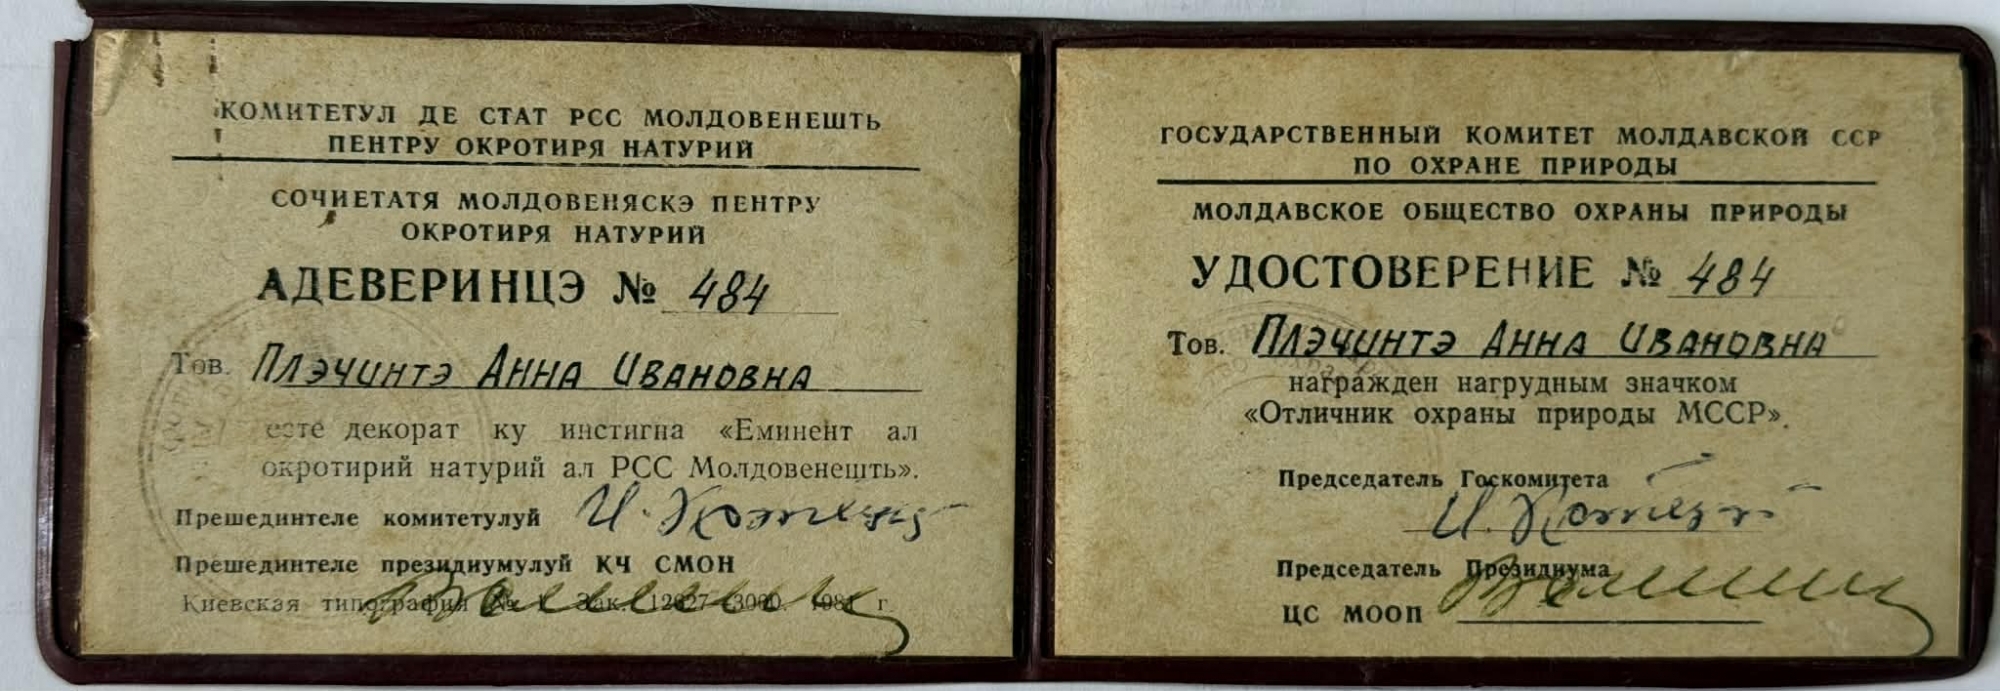 КОМИТЕТУЛ ДЕ СТАТ РСС МОЛДОВЕНЕШТЬ
ПЕНТРУ ОКРОТИРЯ НАТУРИЙ
СОЧИЕТАТЯ МОЛДОВЕНЯСКЭ ПЕНТРУ
ОКРОТИРЯ НАТУРИЙ
АДЕВЕРИНЦЭ № 484
Тов. Плэчинтэ Анна Ивановна
есте декорат ку инстигна «Еминент ал
окротирий натурий ал РСС Молдовенешть».
Прешединтеле комитетулуй
Прешединтеле президиумулуй КЧ СМОН
Киевская типография № Зак. 12027 3000. 1981 г.
ГОСУДАРСТВЕННЫЙ КОМИТЕТ МОЛДАВСКОЙ ССР
ПО ОХРАНЕ ПРИРОДЫ
МОЛДАВСКОЕ ОБЩЕСТВО ОХРАНЫ ПРИРОДЫ
УДОСТОВЕРЕНИЕ № 484
Тов. Плэчинтэ Анна Ивановна
награжден нагрудным значком
«Отличник охраны природы МССР».
Председатель Госкомитета
Председатель Президиума
ЦС МООП